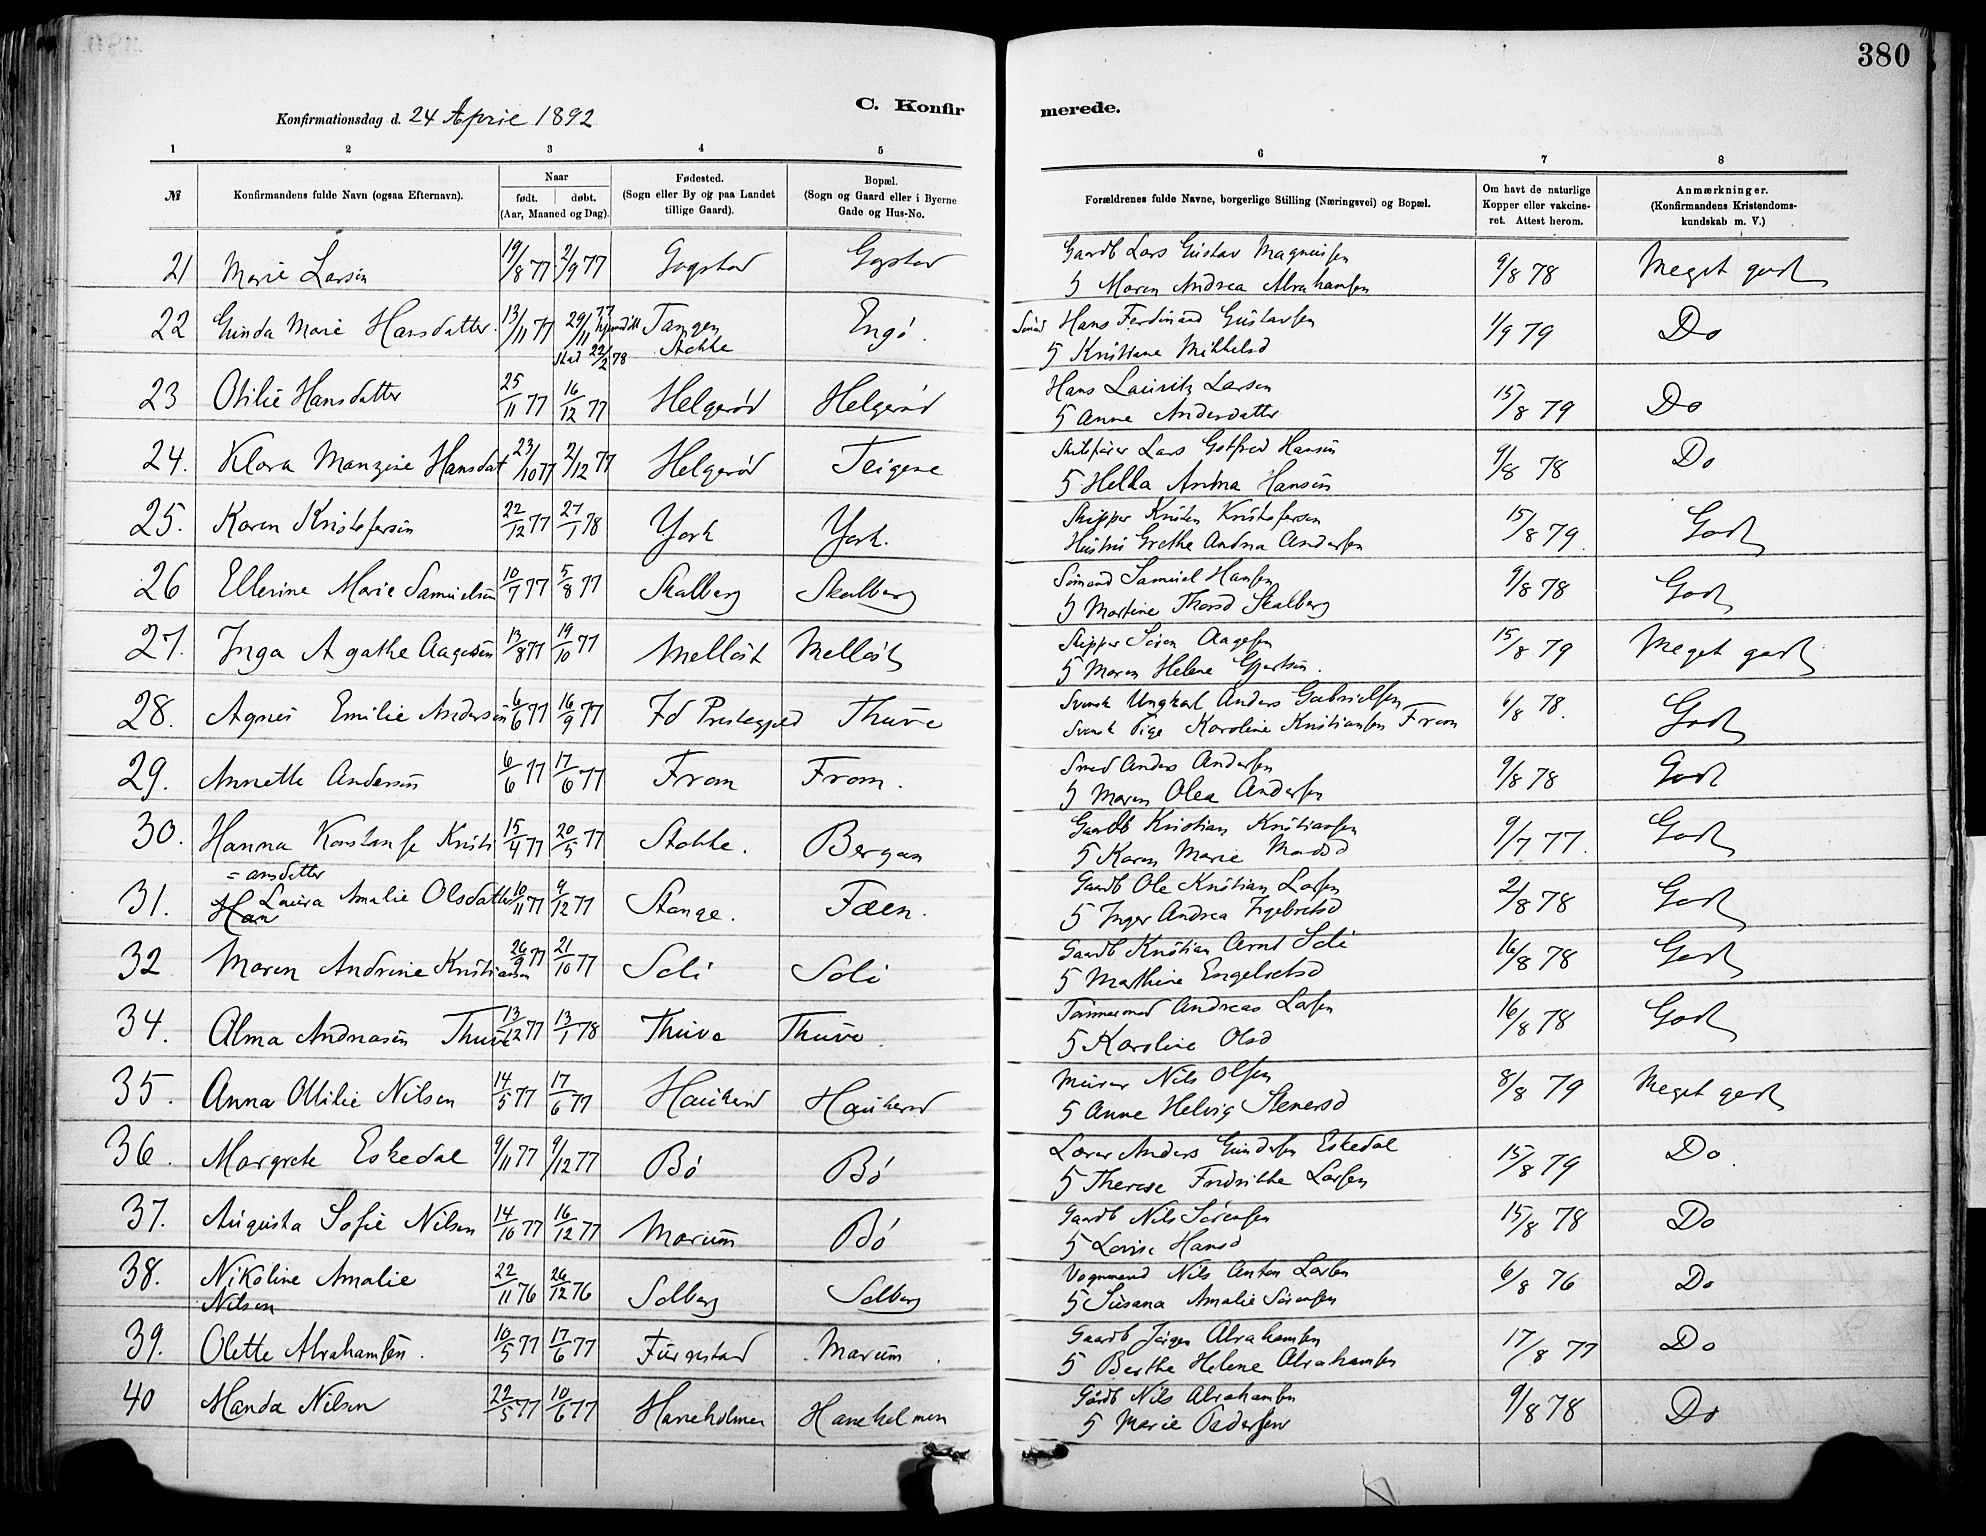 380
C. Konfir merede.
Konfirmationsdag d. 24 April 1892
1 2 3 4 5 6 7 8
№ Konfirmandens fulde Navn (ogsaa Efternavn). Naar født. døbt. (Aar, Maaned og Dag). Fødested. (Sogn eller By og paa Landet tillige Gaard). Bopæl. (Sogn og Gaard eller i Byerne Gade og Hus-No. Forældrenes fulde Navne, borgerlige Stilling (Næringsvei) og Bopæl. Om havt de naturlige Kopper eller vakcineret. Attest herom. Anmærkninger. (Konfirmandens Kristendomskundskab m. V.)
21 Marie Larsen 19/8 77 2/9 77 Gogstad Gogstad Gaardb Lars Gustav Magnussen
Maren Andrea Abrahamsen 9/8 78 Meget godt
22 Gunda Marie Hansdatter 13/11 77 29/11 77 Tangen Stokke Engø Hans Ferdinand Gustavsen
stad. 22/2 78
Kristiane Mikkelsd 1/9 79 Do
23 Otilie Hansdatter 25/11 77 16/12 77 Helgerød Helgerød Hans Lauritz Larsen
Anne Andersdatter 15/8 79 Do
24. Klara Manzine Hansdat 23/10 77 2/12 77 Helgerød Teigene Lars Gotfred Hansen
Helka Hansen 9/8 78 Do
25. Karen Kristofersen 22/12 77 27/1 78 York York. Skipper Kristen Kristofersen
Hustru Grethe Andrea Andersen 15/8 79. Godt
26 Ellerine Marie Samuelsen 10/7 77 5/8 77 Skalberg Skalberg Sømand Samuel Hansen
Martine Thorsd Skalberg 9/8 78 Godt
27. Inga Agathe Aagesen 13/8 77 19/10 77 Melløst Melløst Skipper Søren Aagesen
Maren Helene Gjertsen. 15/8 79 Meget godt
28. Agnes Emilie Andersen 6/6 77 16/9 77 Id Prestegjed Thuve Svensk Ungkarl Anders Gabrielsen
Svensk Pige Karoline Kristiansen Fram 6/8 78. Godt
29. Annette Andersen 6/6 77 17/6 77 Fram Fram. Smed Anders Andersen
Maren Olea Andersen 9/8 78 Godt
30. Hanna Konstanse Kristi 15/4 77 20/5 77 Stokke. Bergan Gaardb Kristian Kristiansen
= ansdatter
Karen Marie Madsd 9/7 77. Godt
31. Laura Amalie Olsdatter 10/11 77 9/12 77 Stange. Fæen. Gaardb Ole Kristian Larsen
Han
Inger Andrea Ingebretsd 2/8 78 Godt
32 Maren Andrine Kristiansen 26/9 77 21/10 77 Soli Soli Gaardb Kristian Arnt Soli
Mathine Engebretsd 16/8 78 Godt
34. Alma Andreasen Thuve 13/12 77 13/1 78 Thuve Thuve. Tømmermd Andreas Larsen
Karoline Olsd 16/8 78 Godt
35. Anna Otilie Nilsen 14/5 77 17/6 77 Haukerød Haukerød Murer Nils Olsen
Anne Helvig Stenersd 8/8 79 Meget godt
36. Margrete Eskedal 9/11 77 9/12 77 Bø Bø Lærer Anders Gundersen Eskedal
Therese Fredrikke Larsen 15/8 79 Do.
37. Augusta Sofie Nilsen 14/10 77 16/12 77 Marum Bø Gaardb Nils Sørensen
Lovise Hansd 15/8 78 Do
38. Nikoline Amalie 22/11 76 26/12 76 Solberg Solberg Vognmand Nils Anton Larsen
Nilsen
Susana Amalie Sørensen 6/8 76 Do
39. Olette Abrahamsen. 10/5 77 17/6 77 Furustad Marum. Gaardb Jørgen Abrahamsen
Berthe Helene Abrahamsen 17/8 77 Do
40 Manda Nilsen 22/5 77 10/6 77 Haneholmen Haneholmen Gårdb Nils Abrahamsen
Marie Pedersen 9/8 78 Do